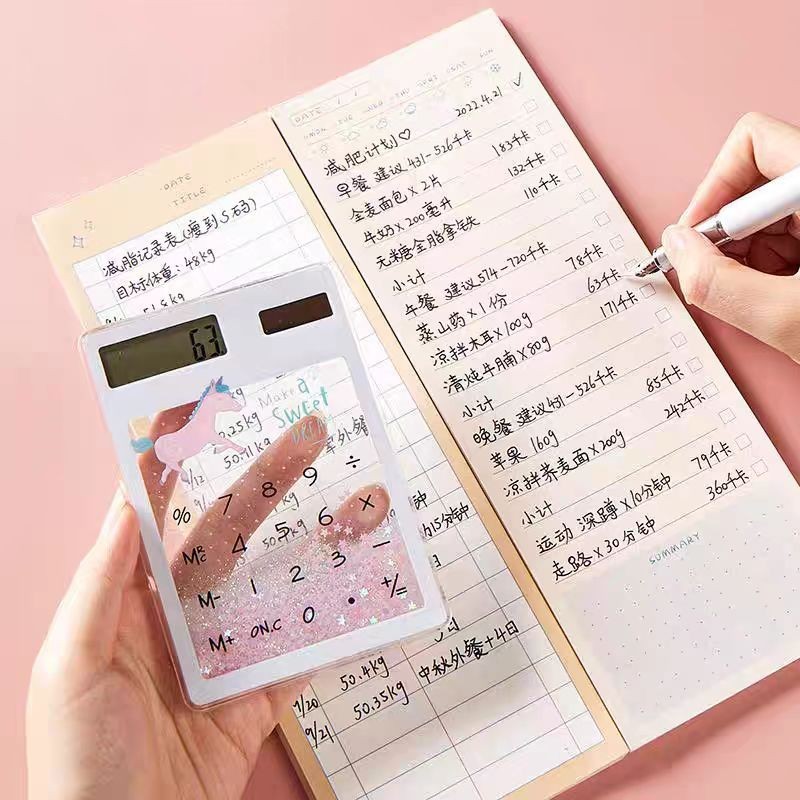 DATE
TITLE
减脂记录表(瘦到S码)
目标体重:48kg
51.8kg
63
Make a
SWEET
DREAM
0.25kg
9/12 50.71kg 军外餐
kg
50.7kg
% 7 8 9 ÷
MRC 4 5 6 ×
M- 1 2 3 -
M+ ON.C 0 . +/=
分钟
15分钟
9/20 50.4kg
9/21 50.35kg 中秋外餐+4日
DATE / /
MON TUE WED THU FRI SAT SUN
减肥计划♡ 2022.4.21 ✓
早餐 建议431-526千卡
全麦面包×2片 183千卡
牛奶×200毫升 132千卡
无米糖全脂拿铁 110千卡
小计
午餐 建议574-720千卡
蒸山药×1份 78千卡
凉拌木耳×100g 63千卡
清炖牛腩×80g 171千卡
小计
晚餐 建议431-526千卡
苹果 160g 85千卡
凉拌荞麦面×200g 242千卡
小计
运动 深蹲×10分钟 79千卡
走路×30分钟 360千卡
SUMMARY